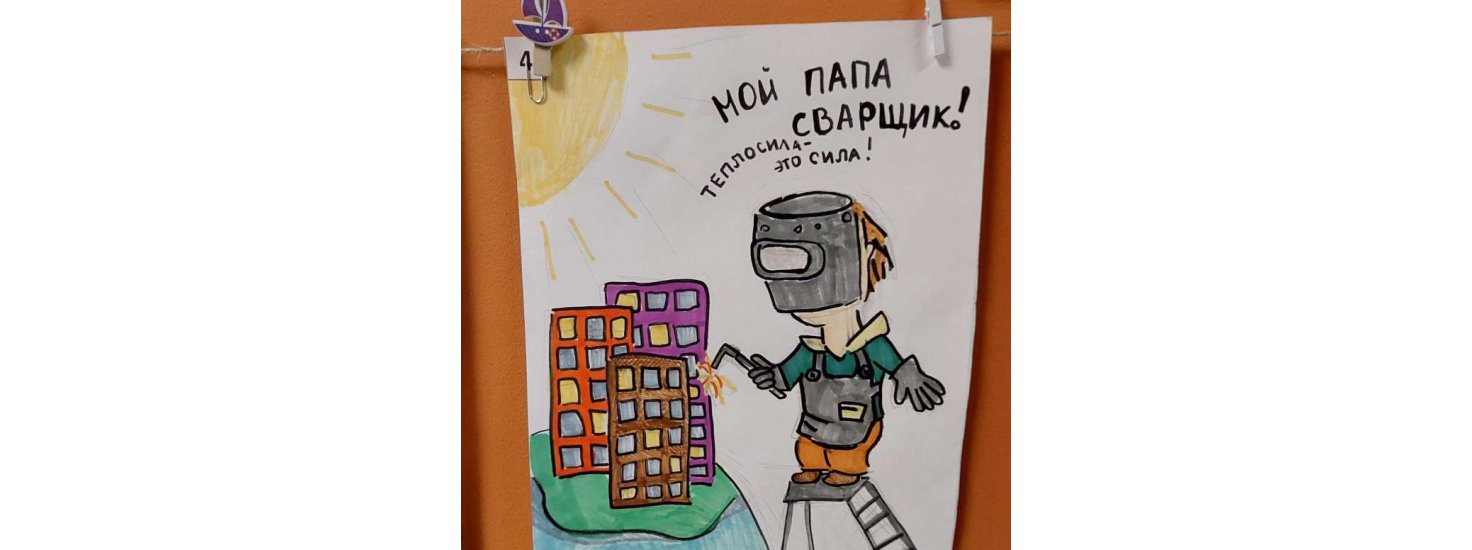 4
МОЙ ПАПА
СВАРЩИК!
ТЕПЛОСИЛА-
ЭТО СИЛА!